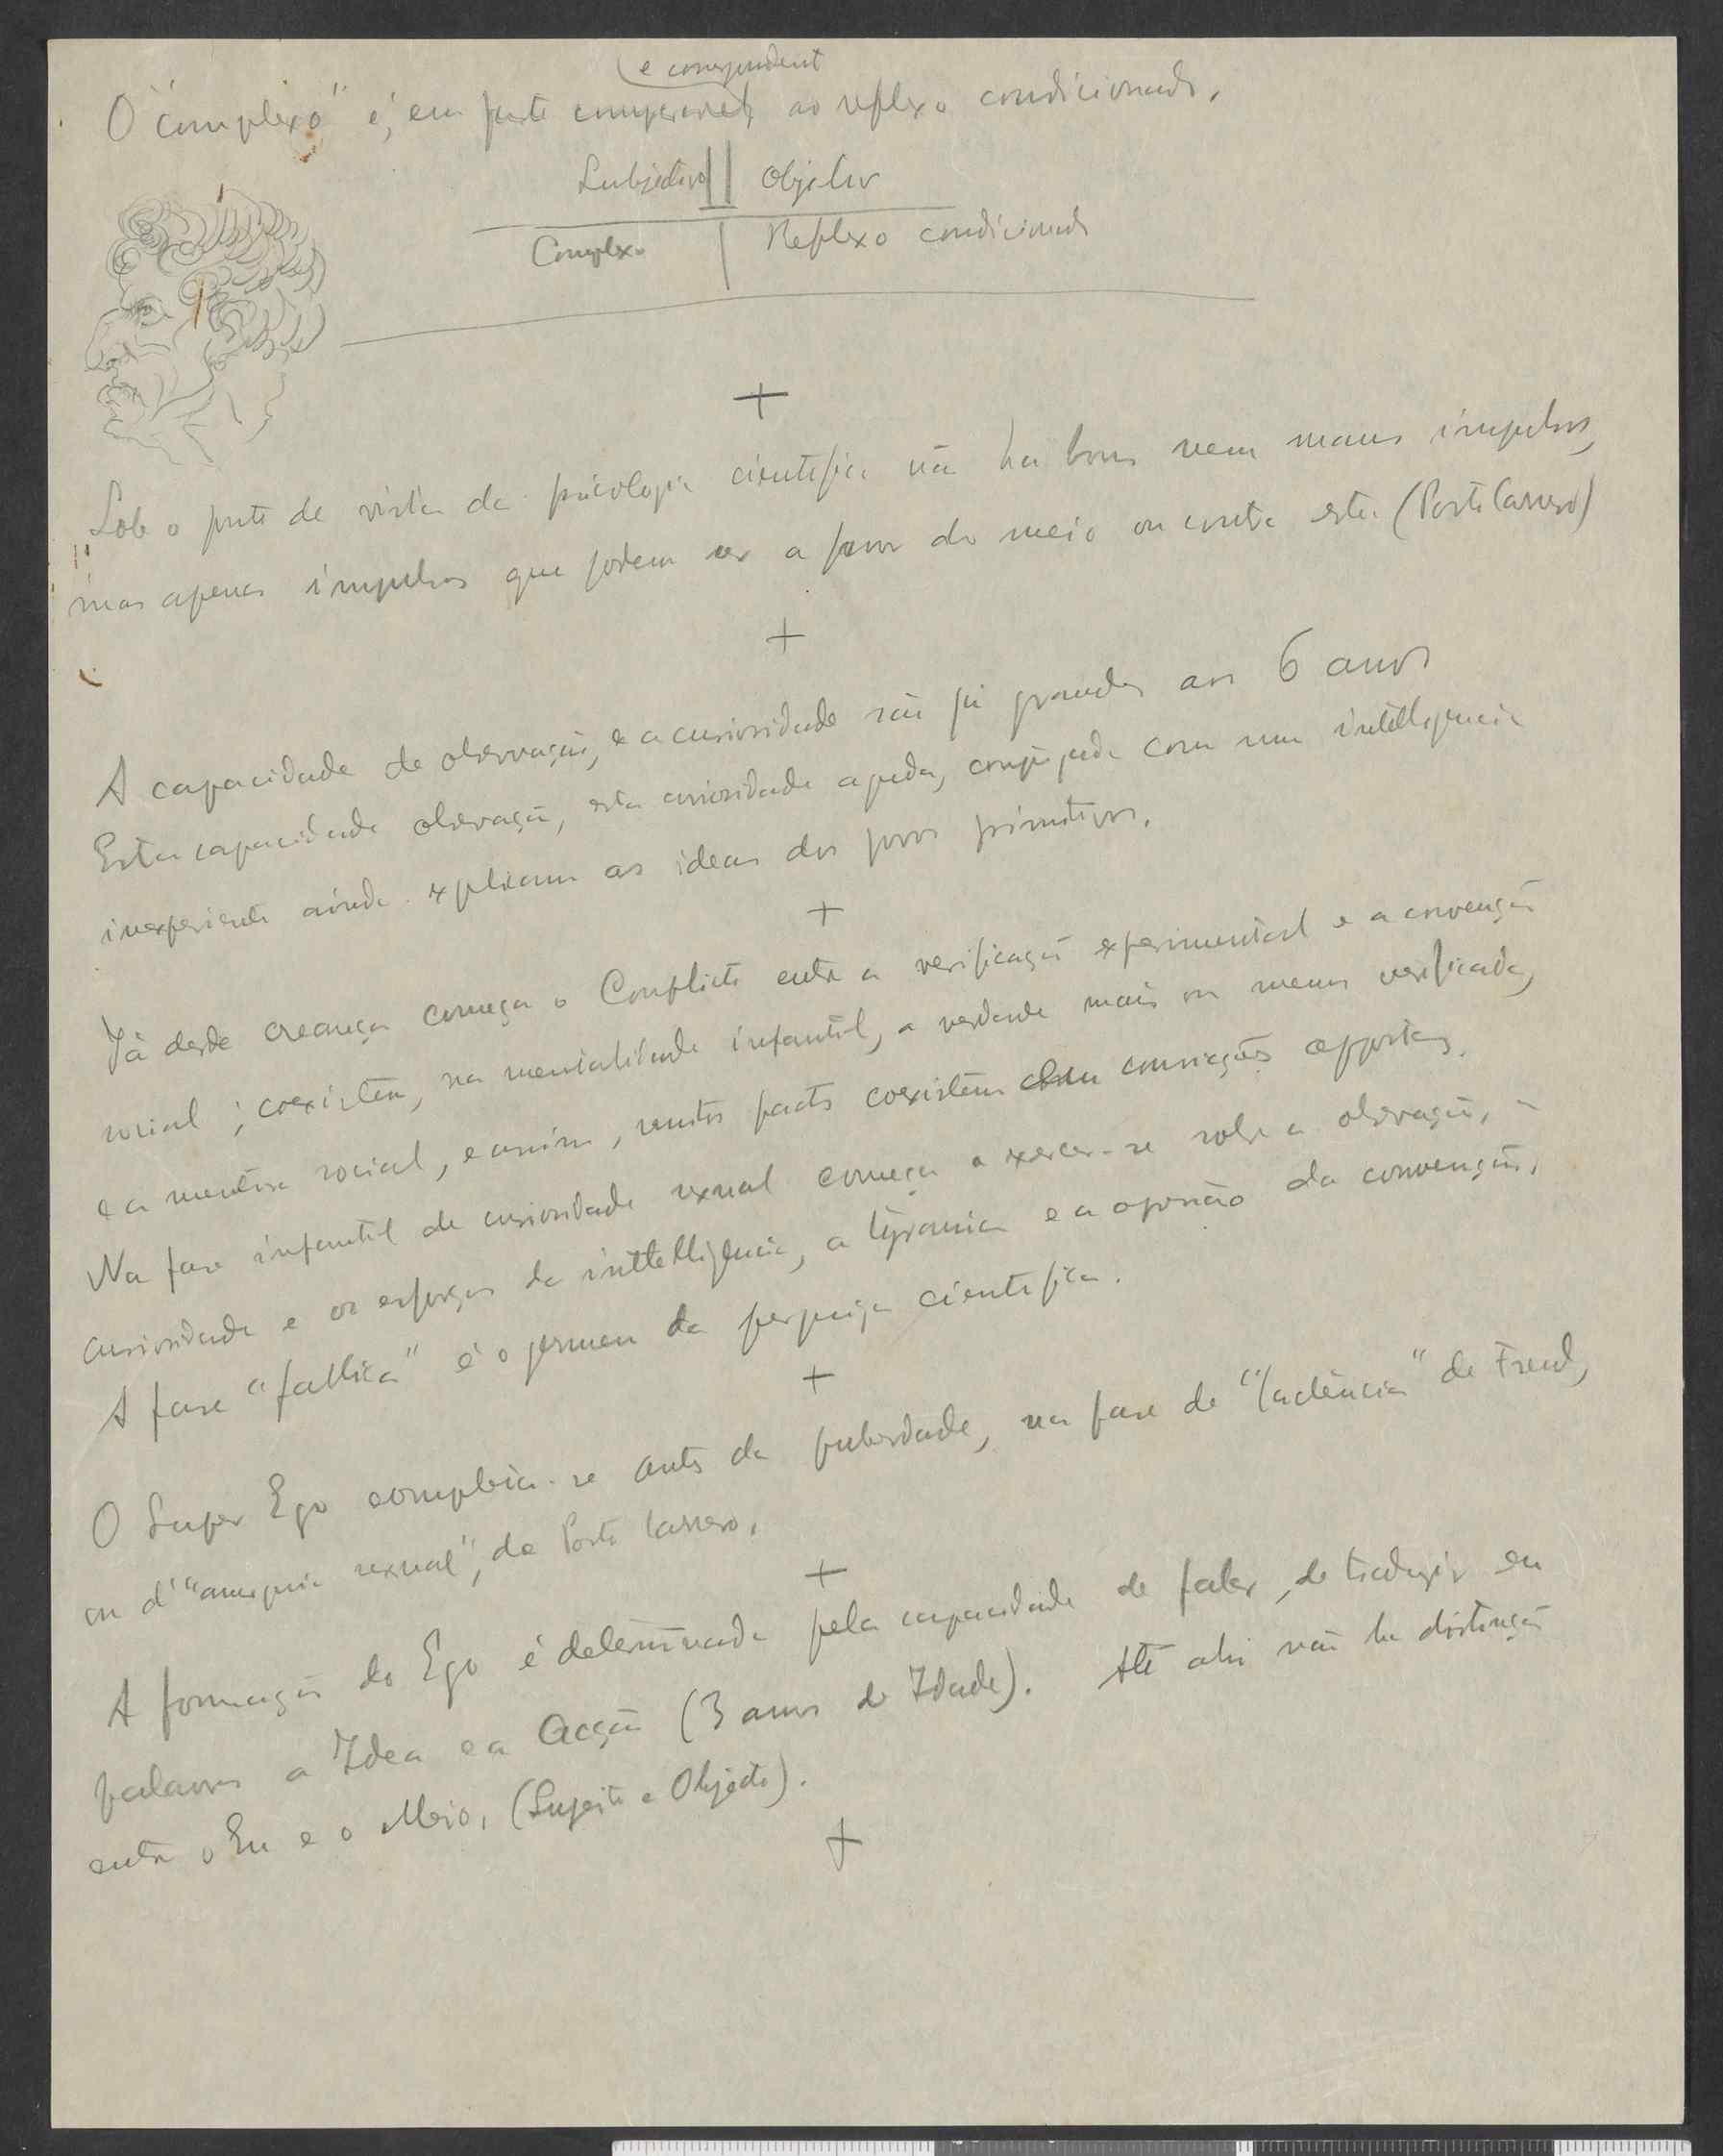 e correspondent
O "complexo" é, em parte comparavel, ao reflexo condicionado.
Subjectivo || Objectivo
Complexo | Reflexo condicionado
+
Sob o ponto de vista da psicologia cientifica não ha bons nem maus impulsos,
mas apenas impulsos que podem ser a favor do meio ou contra este (Porto Carrero)
+
A capacidade de observação, e a curiosidade são já grandes aos 6 anos
Esta capacidade observação, esta curiosidade aguda, conjugada com uma intelligencia
inexperiente ainda explicam as ideas dos povos primitivos.
+
Já desde creança começa o Conflicto entre a verificação experimental e a convenção
social; coexistem, na mentalidade infantil, a verdade mais ou menos verificada,
e a mentira social, e assim, muitos factos coexistem com convicções oppostas.
Na fase infantil de curiosidade sexual começa a exercer-se sobre a observação, a
curiosidade e os esforços da inttelligencia, a tyrania e a opressão da convenção.
A fase "fallica" é o germen da pesquiza cientifica.
+
O Super Ego completa-se antes da puberdade, na fase de "latência" de Freud,
ou d'"anergia sexual", de Porto Carrero.
+
A formação do Ego é determinada pela capacidade de falar, de traduzir em
palavras a Idea e a Acção (3 anos de Idade). Até ahi não ha distinção
entre o Eu e o Meio, (Sujeito e Objecto).
+